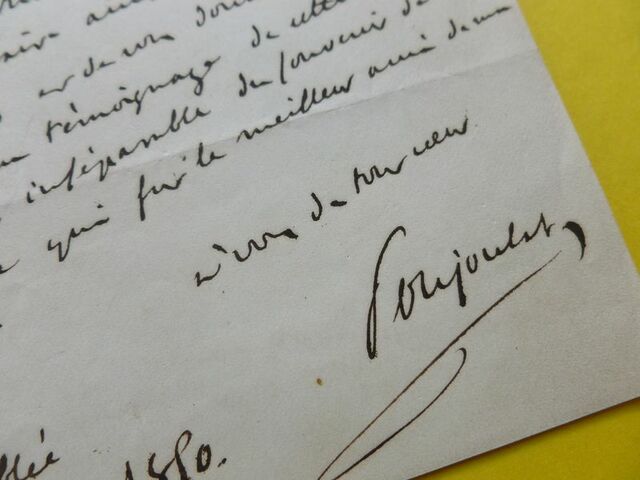 et de vos
témoignage de cette
inséparable du souvenir de
qui fut le meilleur ami de mon
à vous de tout cœur
Poujoulat
1850.